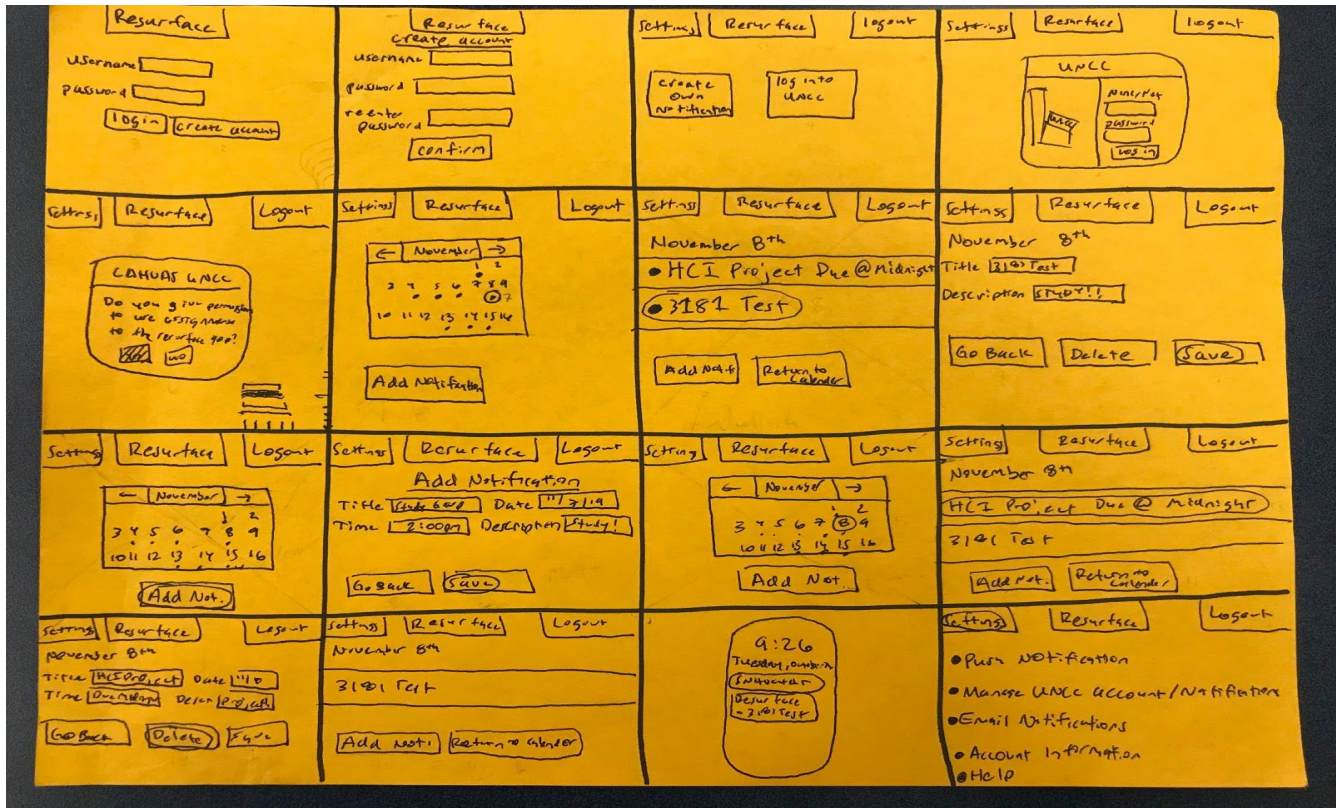 Resurface
username
password
login create account
Resurface
create account
username
password
reenter password
confirm
Settings Resurface logout
create own notification
log into UNCC
Settings Resurface logout
UNCC
UNCC
password
Log in
Settings Resurface Logout
CANVAS UNCC
Do you give permission
to use assignments
to the resurface app?
NO
Settings Resurface Logout
← November →
1 2
3 4 5 6 7 8 9
10 11 12 13 14 15 16
Add Notification
Settings Resurface Logout
November 8th
• HCI Project Due @ Midnight
• 3181 Test
Add Notifi
Return to Calender
Settings Resurface Logout
November 8th
Title 3181 Test
Description STUDY!!
Go Back Delete Save
Settings Resurface Logout
← November →
1 2
3 4 5 6 7 8 9
10 11 12 13 14 15 16
Add Not.
Settings Resurface Logout
Add Notification
Title Date 11/7/19
Time 2:00pm Description Study!
Go Back Save
Setting Resurface Logout
← November →
1 2
3 4 5 6 7 8 9
10 11 12 13 14 15 16
Add Not.
Setting Resurface Logout
November 8th
HCI Project Due @ Midnight
3181 Test
Add Not. Return to Calender
Setting Resurface Logout
November 8th
Title HCI Project Date 11/8
Time Due Midnight Descr Project
Go Back Delete Save
Settings Resurface Logout
November 8th
3181 Test
Add Noti Return to Calender
9:26
Tuesday,
Resurface
- 3181 Test
Settings Resurface Logout
• Push Notification
• Manage UNCC account/Notifications
• Email Notifications
• Account Information
• Help